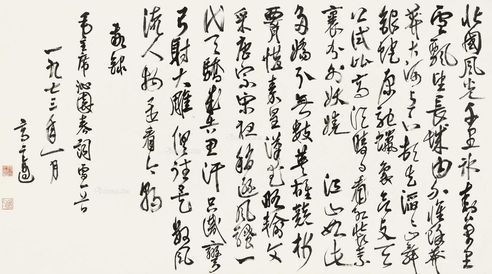 北国风光千里冰封万里
雪飘望长城内外惟馀莽
莽大河上下顿失滔滔山舞
银蛇原驰蜡象欲与天
公试比高须晴日看红装素
裹分外妖娆 江山如此
多娇引无数英雄竞折
腰惜秦皇汉武略输文
采唐宗宋祖稍逊风骚一
代天骄成吉思汗只识弯
弓射大雕俱往矣数风
流人物还看今朝
敬录
毛主席沁园春词雪一首
一九七三年一月
高二适